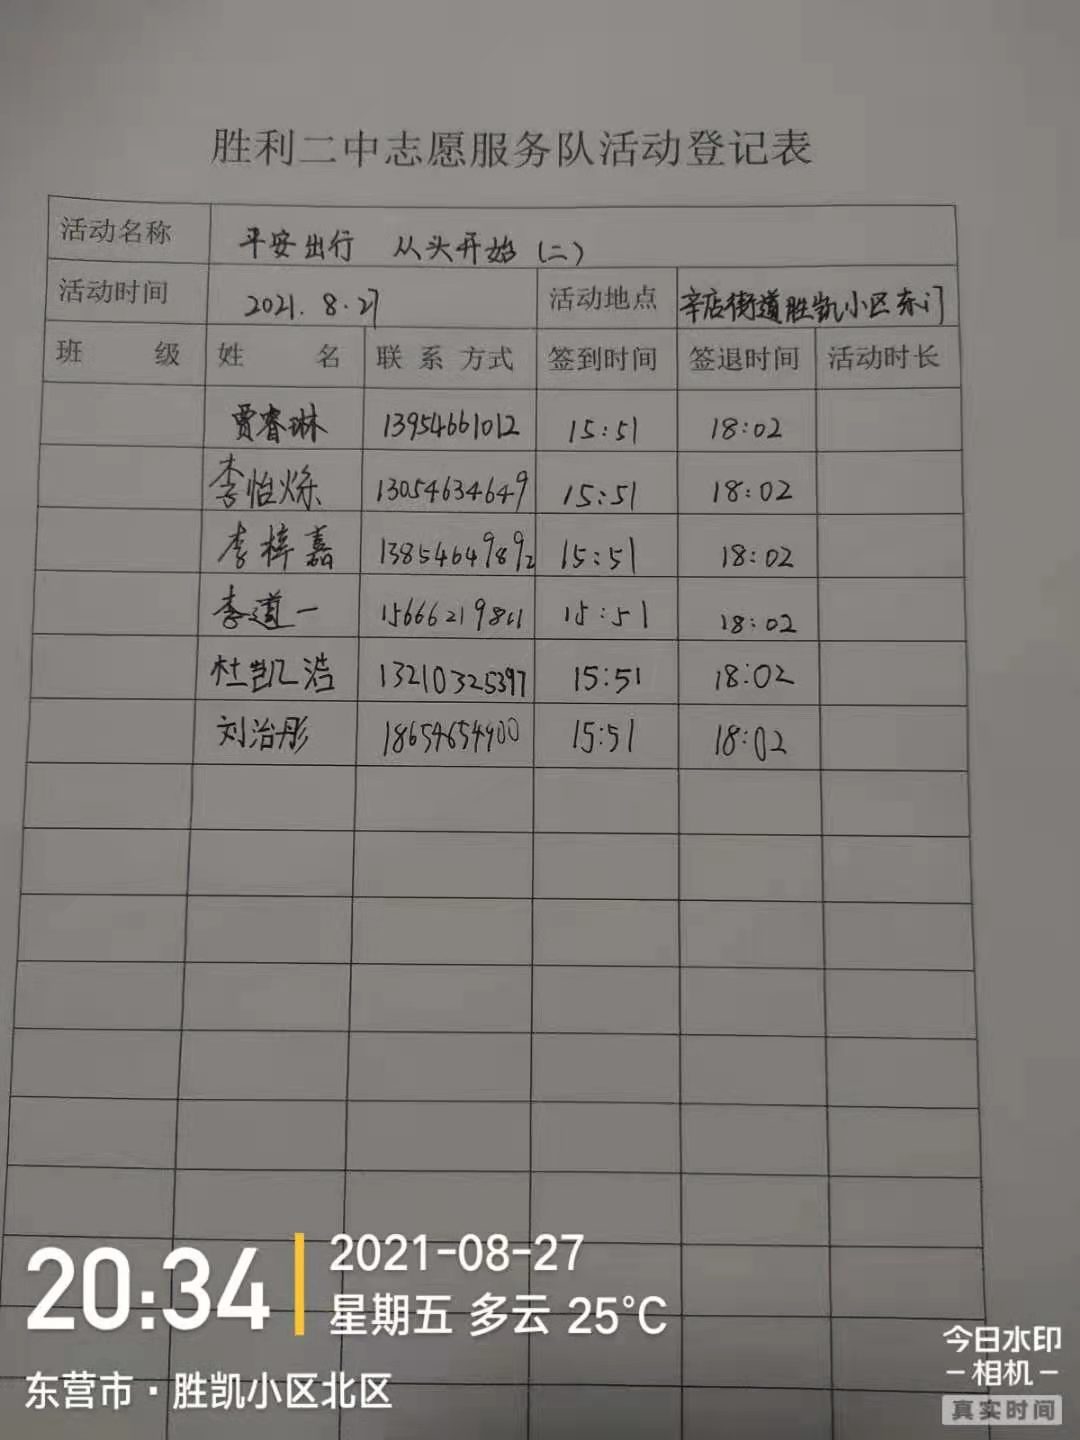 胜利二中志愿服务队活动登记表
活动名称 平安出行 从头开始(二)
活动时间 2021.8.27 活动地点 辛店街道胜凯小区东门
班 级 姓 名 联系方式 签到时间 签退时间 活动时长
贾睿琳 13954661012 15:51 18:02
李怡烁 13054634649 15:51 18:02
李梓嘉 13854649892 15:51 18:02
李道一 15666219811 15:51 18:02
杜凯浩 13210325397 15:51 18:02
刘治彤 18654654900 15:51 18:02
20:34
2021-08-27
星期五 多云 25°C
东营市·胜凯小区北区
今日水印
-相机-
真实时间